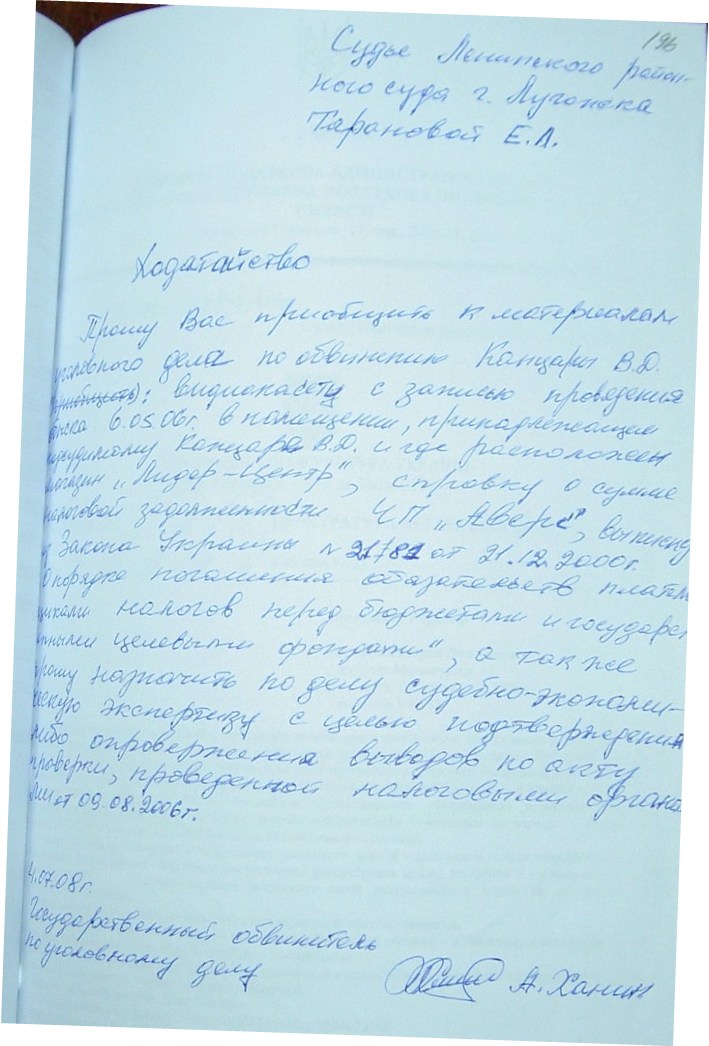 196
Судье Ленинского район-
ного суда г. Луганска
Тарановой Е.Л.
Ходатайство
Прошу Вас приобщить к материалам
уголовного дела по обвинению Канцары В.Д.
(приобщить): видиокасету с записью проведения
обыска 6.05.06г. в помещении, принадлежащем
подсудимому Канцара В.Д. и где расположен
магазин „Лидер-Центр", справку о сумме
налоговой задолженности ЧП „Аверс", выписку
из Закона Украины N 2181 от 21.12.2000г.
О порядке погашения обязательств платель
щиками налогов перед бюджетами и государст
нными целевыми фондами", а так же
прошу назначить по делу судебно-экономи-
ческую экспертизу с целью подтверждения
либо опровержения выводов по акту
проверки, проведенной налоговыми органа
ми от 09.08.2006г.
4.07.08г.
Государственный обвинитель
по уголовному делу
А. Ханин